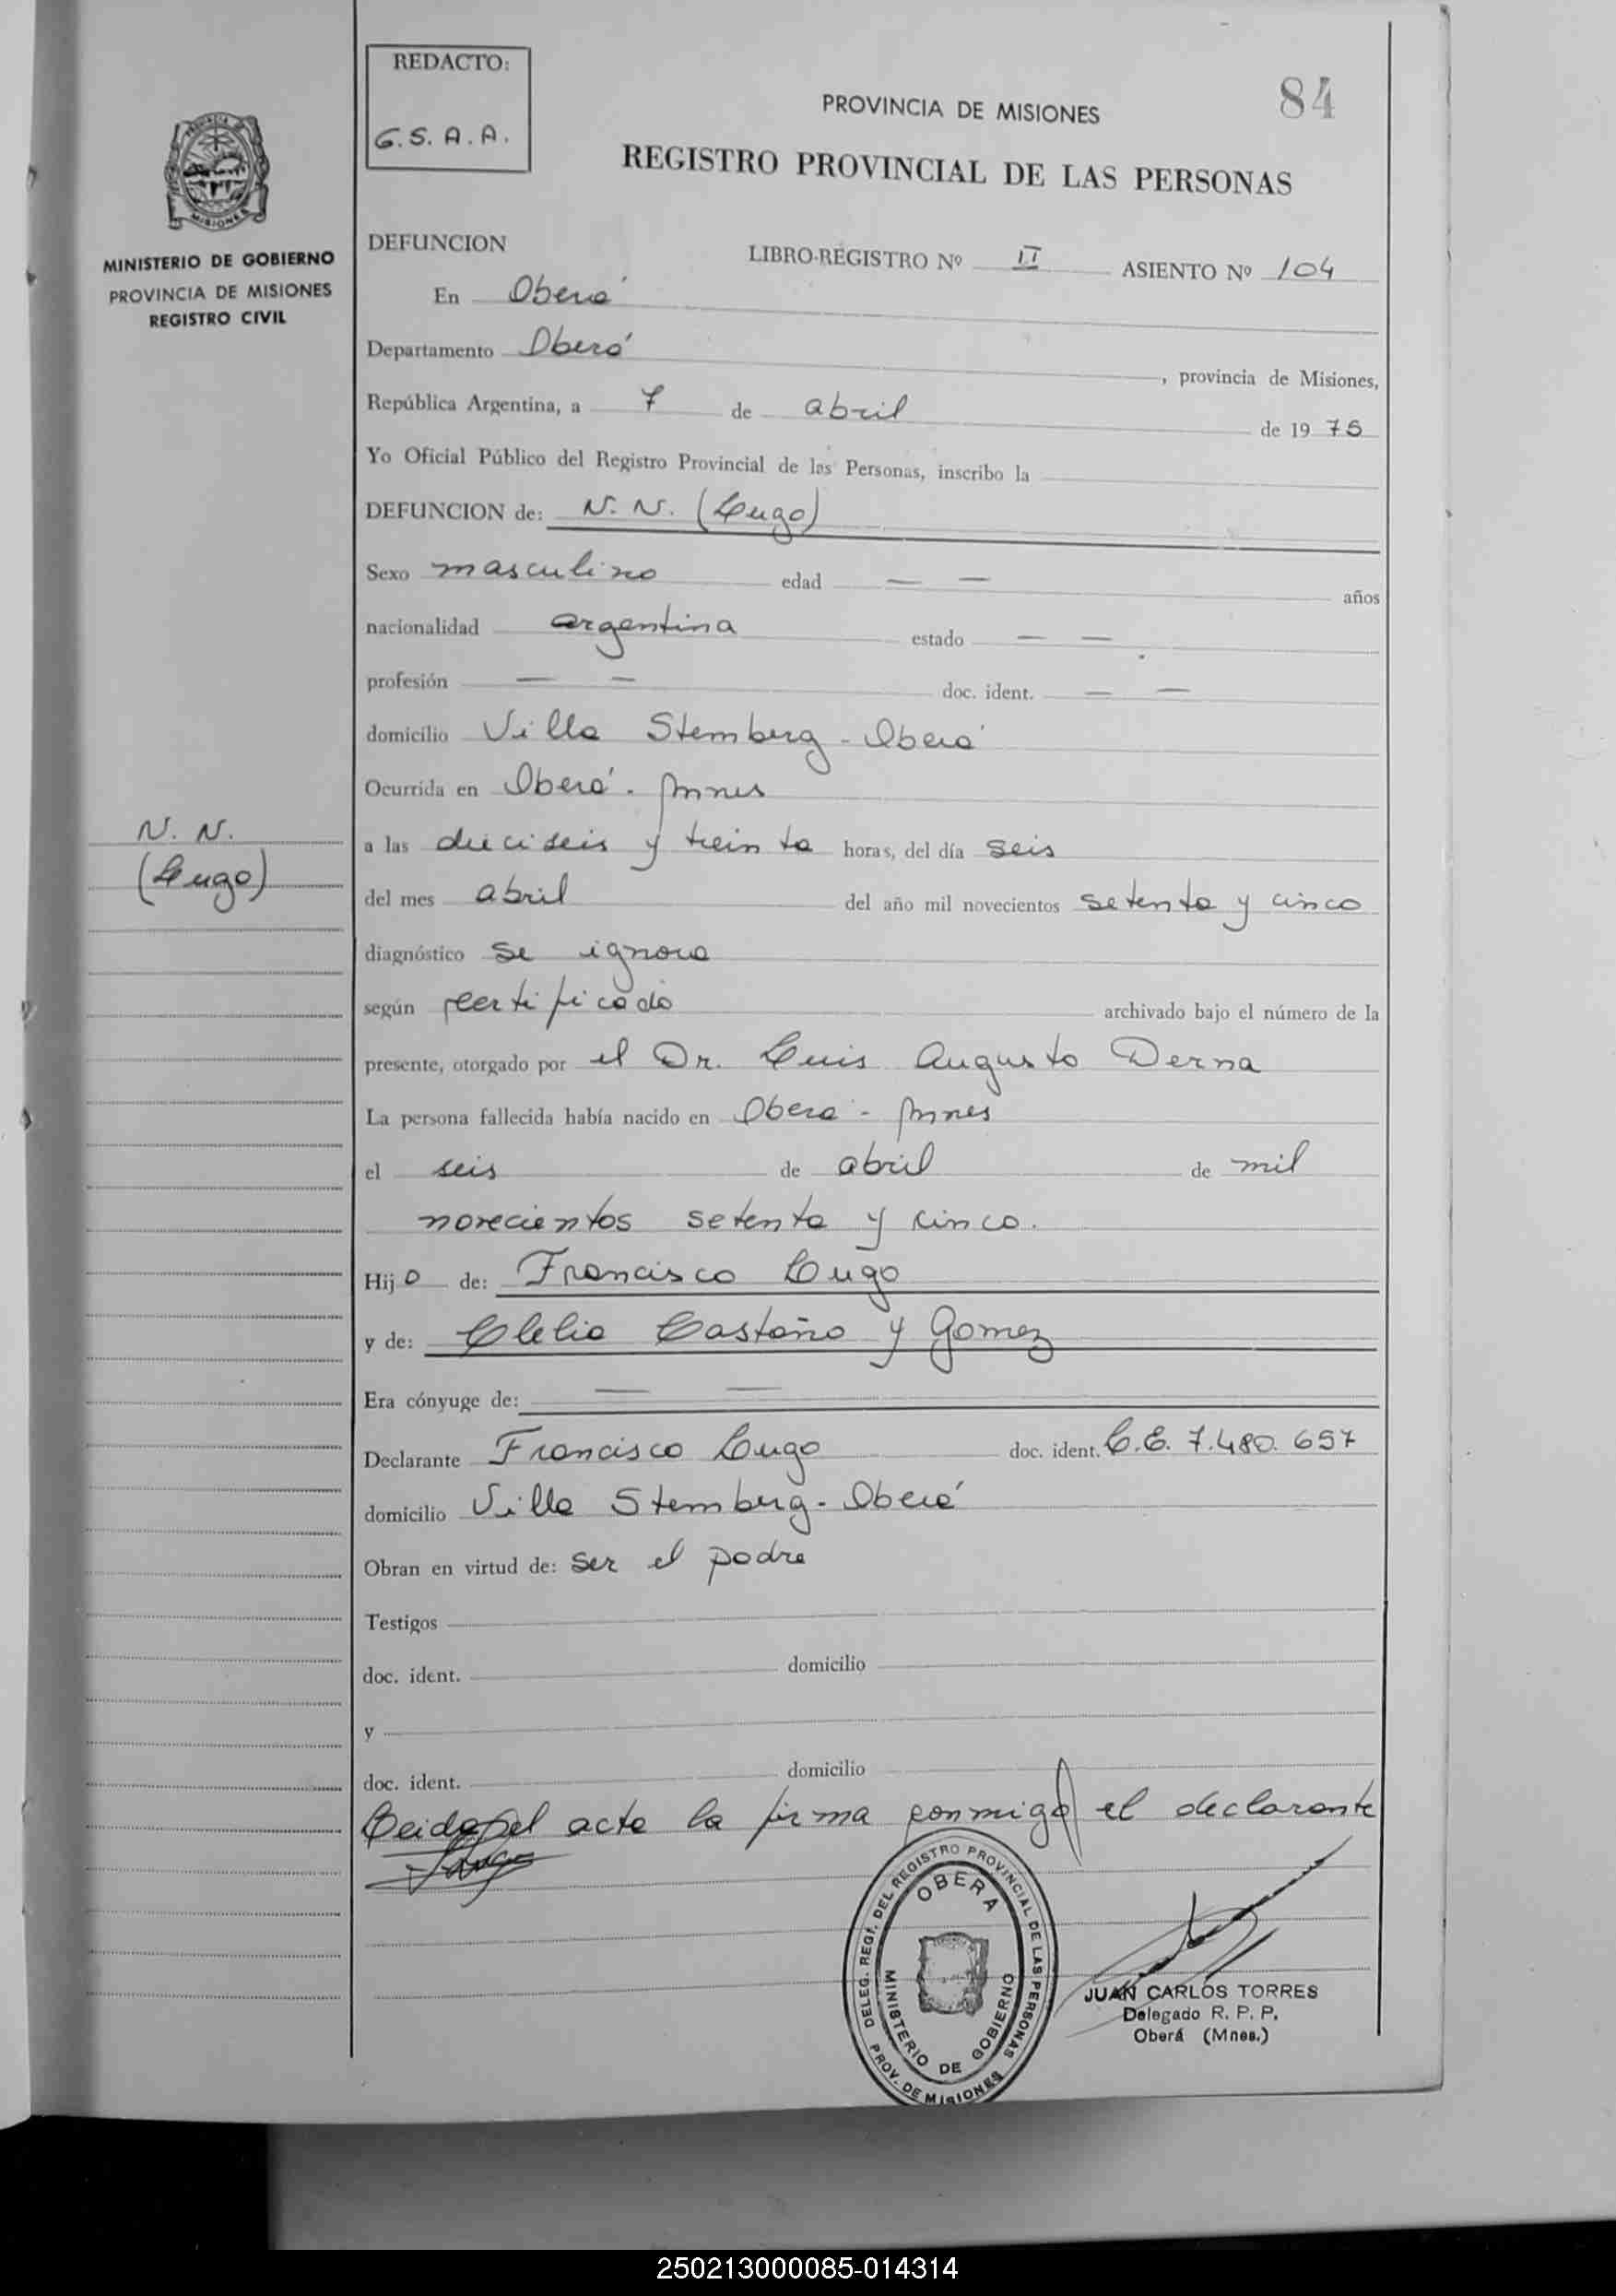 REDACTO:
G.S.A.A.
84
PROVINCIA DE MISIONES
REGISTRO PROVINCIAL DE LAS PERSONAS
MINISTERIO DE GOBIERNO
PROVINCIA DE MISIONES
REGISTRO CIVIL
DEFUNCION LIBRO-REGISTRO Nº II ASIENTO Nº 104
En Oberá
Departamento Oberá, provincia de Misiones,
República Argentina, a 7 de abril de 1975
Yo Oficial Público del Registro Provincial de las Personas, inscribo la
DEFUNCION de: N. N. (Lugo)
Sexo masculino edad — — años
nacionalidad argentina estado — —
profesión — — doc. ident. — —
domicilio Villa Stemberg - Oberá
Ocurrida en Oberá - Mnes
N. N.
(Lugo)
a las dieciseis y treinta horas, del día seis
del mes abril del año mil novecientos setenta y cinco
diagnóstico se ignora
según certificado archivado bajo el número de la
presente, otorgado por el Dr. Luis Augusto Derna
La persona fallecida había nacido en Oberá - Mnes
el seis de abril de mil
novecientos setenta y cinco.
Hijo de: Francisco Lugo
y de: Clelia Castaño y Gomez
Era cónyuge de: — —
Declarante Francisco Lugo doc. ident. C.E. 7.480.657
domicilio Villa Stemberg - Oberá
Obran en virtud de: ser el padre
Testigos
doc. ident. domicilio
y
doc. ident. domicilio
Leida el acta la firma conmigo el declarante
DELEG. REGT. DEL REGISTRO PROVINCIAL DE LAS PERSONAS
OBERA
MINISTERIO DE GOBIERNO
PROV. DE MISIONES
JUAN CARLOS TORRES
Delegado R. P. P.
Oberá (Mnes.)
250213000085-014314